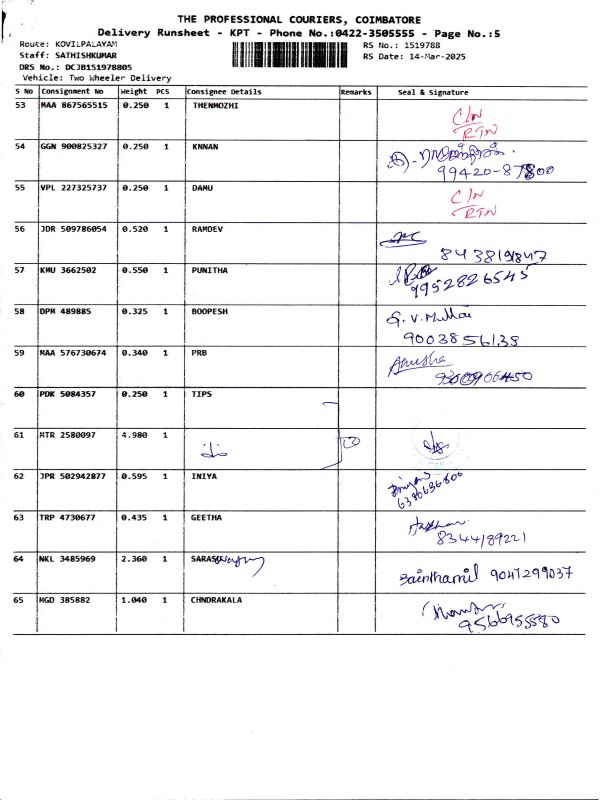 THE PROFESSIONAL COURIERS, COIMBATORE
Delivery Runsheet - KPT - Phone No.:0422-3505555 - Page No.:5
Route: KOVILPALAYAM RS No.: 1519788
Staff: SATHISHKUMAR RS Date: 14-Mar-2025
DRS No.: DCJB151978805
Vehicle: Two Wheeler Delivery
S No Consignment No Weight PCS Consignee Details Remarks Seal & Signature
53 MAA 867565515 0.250 1 THENMOZHI
C/N
RTN
54 GGN 900825327 0.250 1 KNNAN
99420-87800
55 VPL 227325737 0.250 1 DAMU
C/N
RTN
56 JDR 509786054 0.520 1 RAMDEV
8438191847
57 KMU 3662502 0.550 1 PUNITHA
9952826545
58 DPM 489885 0.325 1 BOOPESH
G. V. Mullai
9003856138
59 MAA 576730674 0.340 1 PRB
Anusha
60 PDK 5084357 0.250 1 TIPS
61 MTR 2580097 4.980 1
62 JPR 502942877 0.595 1 INIYA
Iniyan
6380636806
63 TRP 4730677 0.435 1 GEETHA
8344189221
64 NKL 3485969 2.360 1
Sainthamil 9047299037
65 MGD 385882 1.040 1 CHNDRAKALA
9566955580